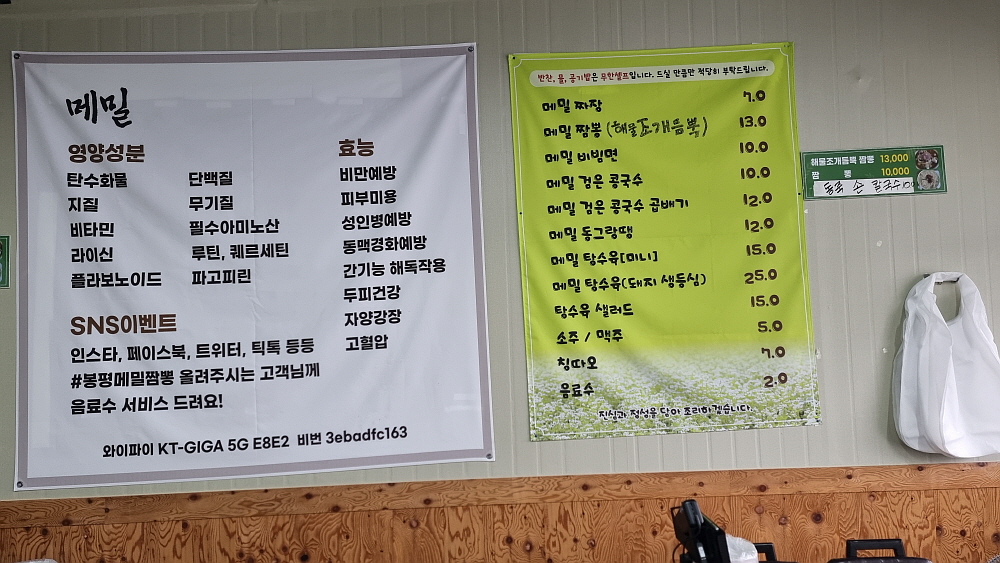 메밀
영양성분
탄수화물 단백질
지질 무기질
비타민 필수아미노산
라이신 루틴, 퀘르세틴
플라보노이드 파고피린
효능
비만예방
피부미용
성인병예방
동맥경화예방
간기능 해독작용
두피건강
자양강장
고혈압
SNS이벤트
인스타, 페이스북, 트위터, 틱톡 등등
#봉평메밀짬뽕 올려주시는 고객님께
음료수 서비스 드려요!
와이파이 KT-GIGA 5G E8E2 비번 3ebadfc163
반찬, 물, 공기밥은 무한셀프입니다. 드실 만큼만 적당히 부탁드립니다.
메밀 짜장 7.0
메밀 짬뽕 (해물조개듬뿍) 13.0
메밀 비빔면 10.0
메밀 검은 콩국수 10.0
메밀 검은 콩국수 곱배기 12.0
메밀 동그랑땡 12.0
메밀 탕수육[미니] 15.0
메밀 탕수육(돼지 생등심) 25.0
탕수육 샐러드 15.0
소주 / 맥주 5.0
칭따오 7.0
음료수 2.0
진심과 정성을 담아 조리하겠습니다.
해물조개듬뿍 짬뽕 13,000
짬 뽕 10,000
손 칼국수